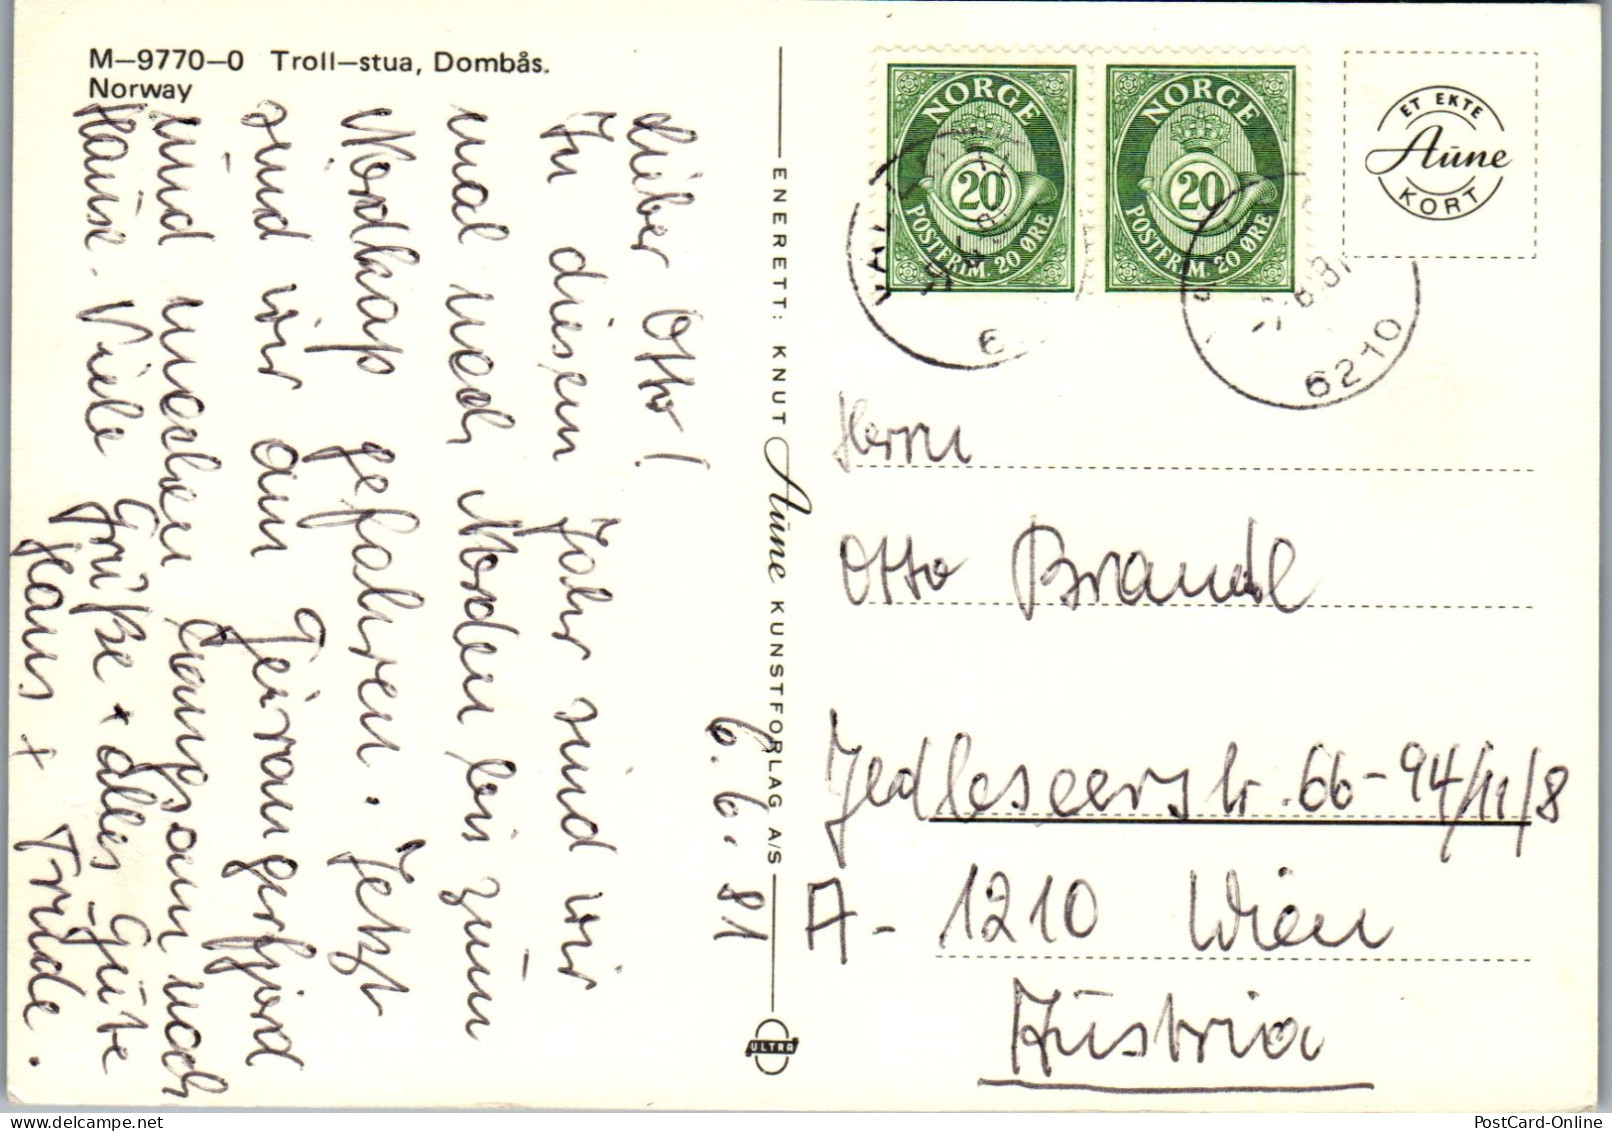 M—9770—0 Troll—stua, Dombås.
Norway
Lieber Otto!
In diesem Jahr sind wir
mal nach Norden bis zum
Nordkap gefahren. Jetzt
sind wir am Geirangerfjord
und machen langsam nach
Hause. Viele Grüße + alles Gute
Hans + Trude.
6.6.81
ENERETT: KNUT Aune KUNSTFORLAG A/S
ULTRA
NORGE
20
POSTFRIM. 20 ØRE
NORGE
20
POSTFRIM. 20 ØRE
6
6210
ET EKTE
Aune
KORT
Herrn
Otto Brandl
Jedleseerstr. 66-94/11/8
A-1210 Wien
Austria
PostCard-Online